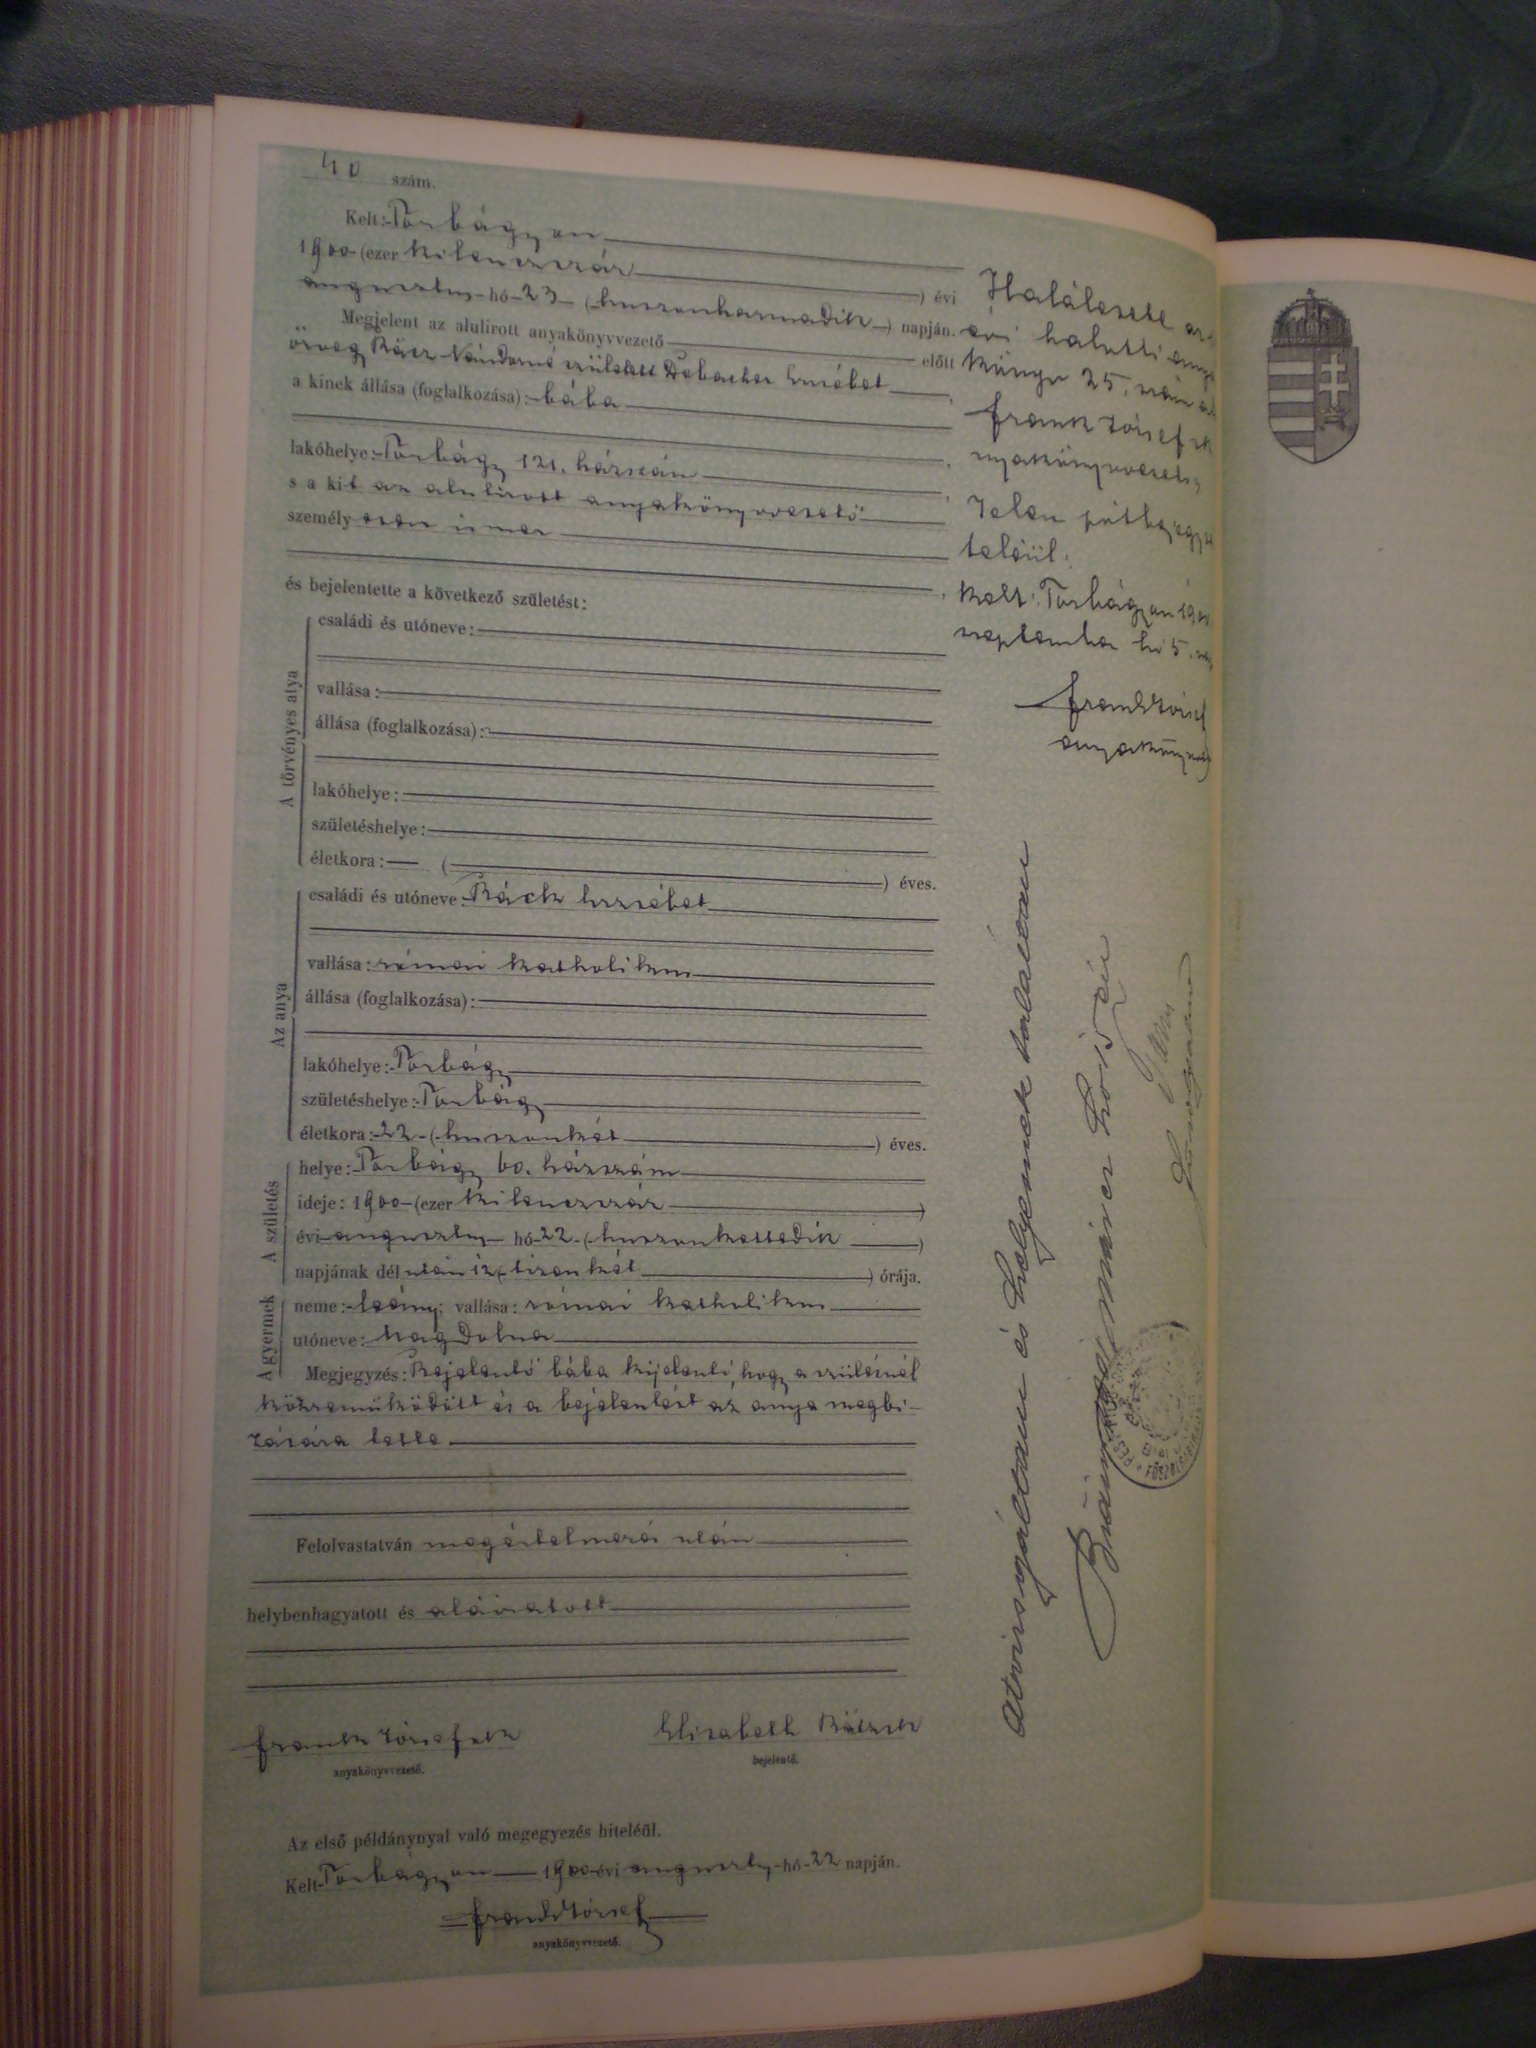 40 szám.
Kelt: Torbágyon
1900 (ezer kilenczszáz ) évi
augusztus hó 23 (huszonharmadik) napján.
Megjelent az alulirott anyakönyvvezető előtt
özvegy Rácz Nándorné született Erzsébet
a kinek állása (foglalkozása): bába
lakóhelye: Torbágy 121. házszám
s a kit az alulirott anyakönyvvezető
személyesen ismer
és bejelentette a következő születést:
A törvényes atya
családi és utóneve:
vallása:
állása (foglalkozása):
lakóhelye:
születéshelye:
életkora: ( ) éves.
Az anya
családi és utóneve: Ráck Erzsébet
vallása: római katholikus
állása (foglalkozása):
lakóhelye: Torbágy
születéshelye: Torbágy
életkora: 22 (huszonkét ) éves.
A születés
helye: Torbágy 60. házszám
ideje: 1900 (ezer kilenczszáz )
évi augusztus hó 22 (huszonkettedik )
napjának délután 12 (tizenkét ) órája.
A gyermek
neme: leány; vallása: római katholikus
utóneve: Magdolna
Megjegyzés: Bejelentő bába kijelenti, hogy a szülésnél
közreműködött és a bejelentést az anya megbi-
zására tette.
Felolvastatván megértelmezés után
helybenhagyatott és aláiratott
Frank József
anyakönyvvezető.
Elisabeth
bejelentő.
Az első példánynyal való megegyezés hiteléül.
Kelt Torbágyon 1900 évi augusztus hó 22 napján.
Frank József
anyakönyvvezető.
Halálesete
évi halotti
25. szám
Frank József
Jelen
teléül.
Kelt: Torbágyon
szeptember hó 5.
Frank József
Átvizsgáltam és helyesnek találtam